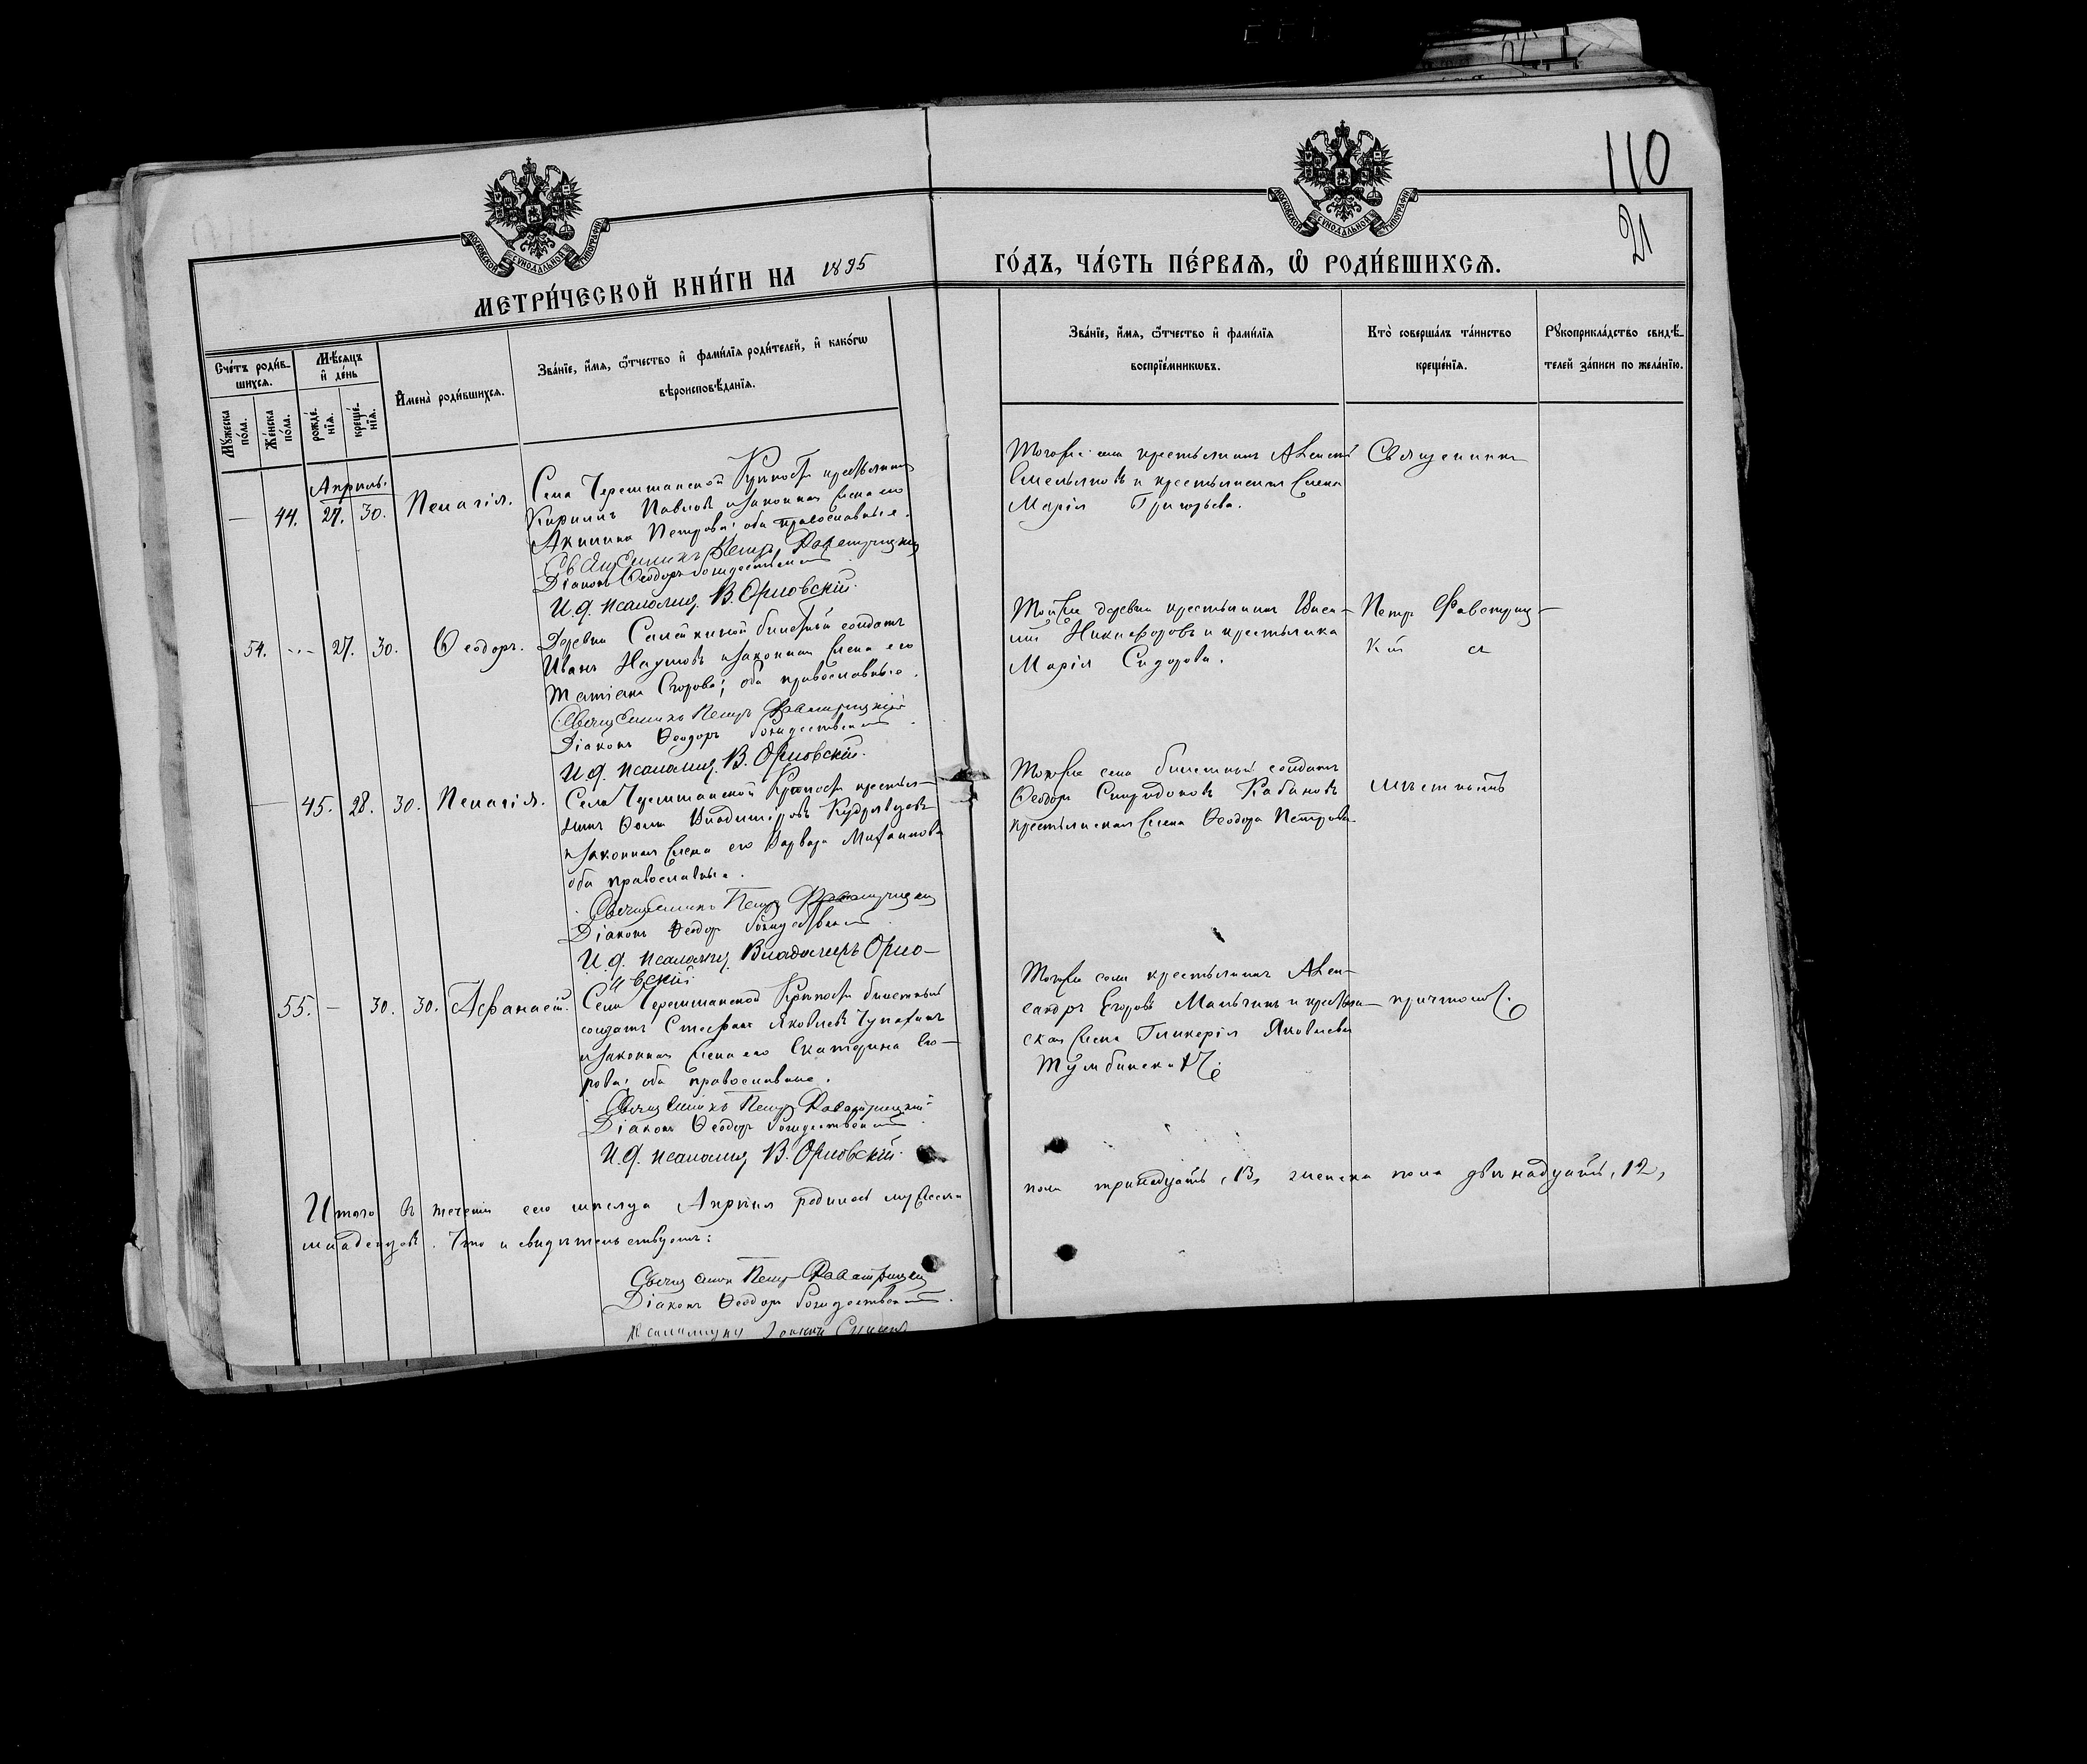 110
21
МОСКОВСКОЙ СУНОДАЛЬНОЙ ТИПОГРАФІИ
МОСКОВСКОЙ СУНОДАЛЬНОЙ ТИПОГРАФІИ
МЕТРИ́ЧЕСКОЙ КНИ́ГИ НА 1895
ГО́ДЪ, ЧА́СТЬ ПЕ́РВАѦ, Ѿ РОДИ́ВШИХСѦ.
Сче́тъ роди́в-
шихсѧ.
Мꙋ́жеска по́ла.
Же́нска по́ла.
Мѣ́сѧцъ и҆ де́нь
рожде́-нїѧ.
креще́-нїѧ.
И҆мена̀ роди́вшихсѧ.
Зва́нїе, и҆́мѧ, ѻ҆́тчество и҆ фами́лїѧ роди́телей, и҆ како́гѡ
вѣроисповѣ́данїѧ.
Зва́нїе, и҆́мѧ, ѻ҆́тчество и҆ фами́лїѧ
воспрїе́мникѡвъ.
Кто̀ соверша́лъ та́инство
креще́нїѧ.
Рꙋкоприкла́дство свидѣ́-
телей за́писи по жела́нїю.
Апрѣль.
— 44. 27. 30. Пелагія.
Села Черемшанской Крѣпости крестьянинъ
Кириллъ Павловъ и законная жена его
Акилина Петрова; оба православные.
Священникъ Петръ
Діаконъ Ѳеодоръ Рождественскій
И. д. псаломщ. В. Орловскій.
Тогоже села крестьянинъ Алексѣй
Емельяновъ и крестьянская жена
Марія Григорьева.
Священникъ
54. — 27. 30. Ѳеодоръ.
Деревни билетный солдатъ
Иванъ Наумовъ и законная жена его
Татіана Егорова; оба православные.
Священникъ Петръ
Діаконъ Ѳеодоръ Рождественскій
И. д. псаломщ. В. Орловскій.
Тойже деревни крестьянинъ Васи-
лій Никифоровъ и крестьянка
Марія Сидорова.
Петръ
кій съ
— 45. 28. 30. Пелагія.
Села Черемшанской Крѣпости крестья-
нинъ Ѳома Владиміровъ Кудрявцевъ
и законная жена его Варвара Михаилова
оба православные.
Священникъ Петръ
Діаконъ Ѳеодоръ Рождественскій
И. д. псаломщ. Владиміръ Орло-
вскій.
Тогоже села билетный солдатъ
Ѳеодоръ Спиридоновъ Кабановъ
крестьянская жена Ѳеодора Петрова.
мѣстнымъ
55. — 30. 30. Аѳанасій.
Села Черемшанской Крѣпости билетный
солдатъ Стефанъ Яковлевъ Чупахинъ
и законная жена его Екатерина Его-
рова; оба православные.
Священникъ Петръ
Діаконъ Ѳеодоръ Рождественскій
И. д. псаломщ. В. Орловскій.
Тогоже села крестьянинъ Алек-
сандръ Егоровъ Мальчинъ и крестьян-
ская жена Гликерія Яковлева
причтомъ.
Итого въ теченіи сего мѣсяца Апрѣля родилось мужеска
пола тринадцать, 13, женска пола двѣнадцать, 12,
младенцевъ. Что и свидѣтельствуемъ:
Священникъ Петръ
Діаконъ Ѳеодоръ Рождественскій.